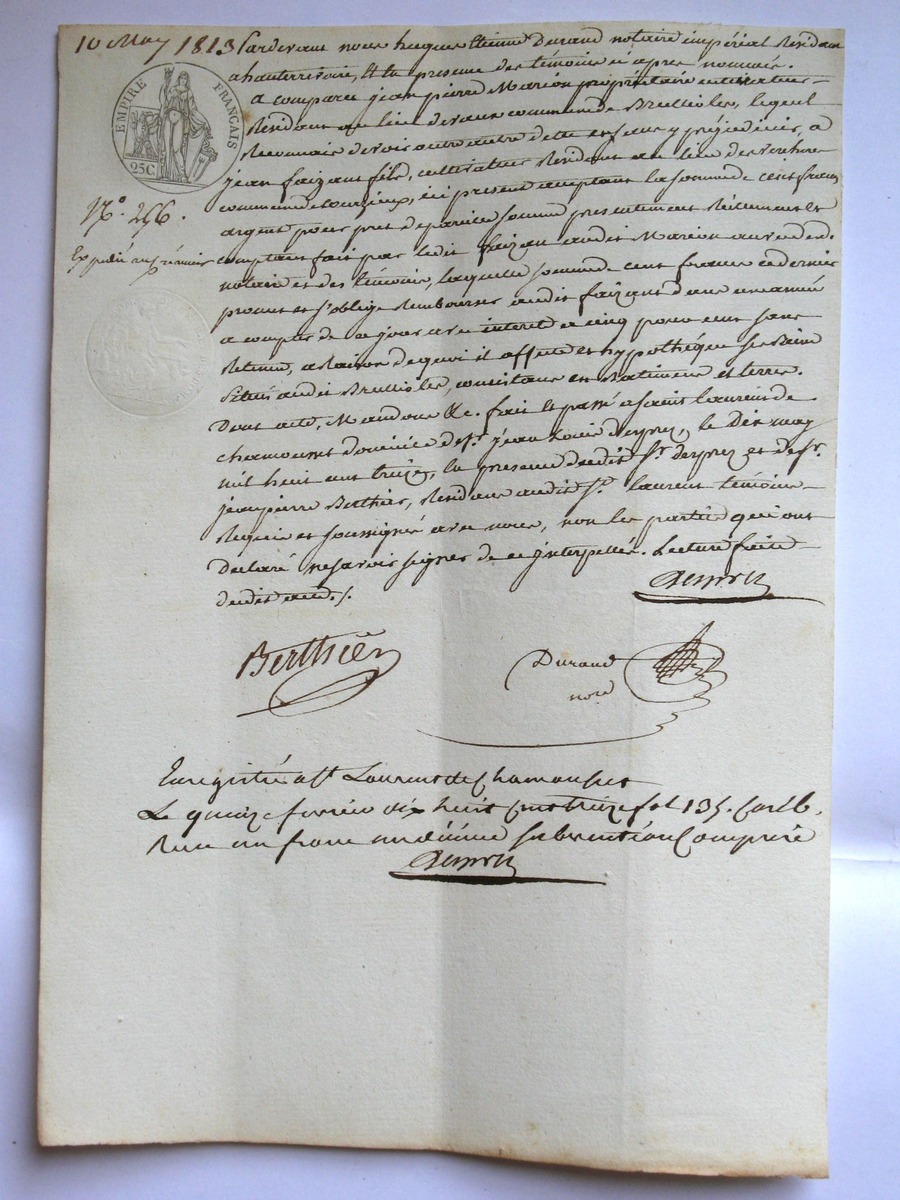 10 May 1813
EMPIRE FRANÇAIS
25C
N.° 256.
Expédié
Pardevant nous hugues Etienne Durand notaire impérial Résidant
a hauterivoire, Et En presence des témoins ci après nommés.
a comparu jean pierre Marion propriétaire cultivateur
Residant au lieu devaux commune de Brullioles, lequel
Reconnois devoir outre autre dette et sans y préjudicier, a
jean faizant fils, cultivateur Residant au lieu des
commune de courzieux, ici présent acceptant la somme de cent francs
argent pour pret de pareille somme presentement Réellement et
comptant fait par ledit faizan audit Marion au vu dud.
notaire et des témoins, laquelle somme de cent francs ce dernier
promet et s'oblige Rembourser audit faizant dans une année
a compter de ce jour avec interet a cinq pour cent sans
Retenue, a Raison de quoi il affecte et hypothéque ses biens
situés audit Brullioles, consistans en Batiment et terres.
Dont acte, Mandons &c. fait et passé a saint laurent de
chamousset domicile de Sr. jean louis Desprez, le Dix may
mil huit cent treize, En presence dudit Sr. Desprez et de Sr.
jean pierre Berthier, Residans audit St. laurent témoins
Requis et soussignés avec nous, non les parties qui ont
Declaré ne savoir signer de ce interpellés. Lecture faite
dudit
Berthier
Durand
nore
Enregistré a St Laurent de Chamousset
Le dix huit Cent treize fol 135.
Recu un franc un décime subvention Comprise